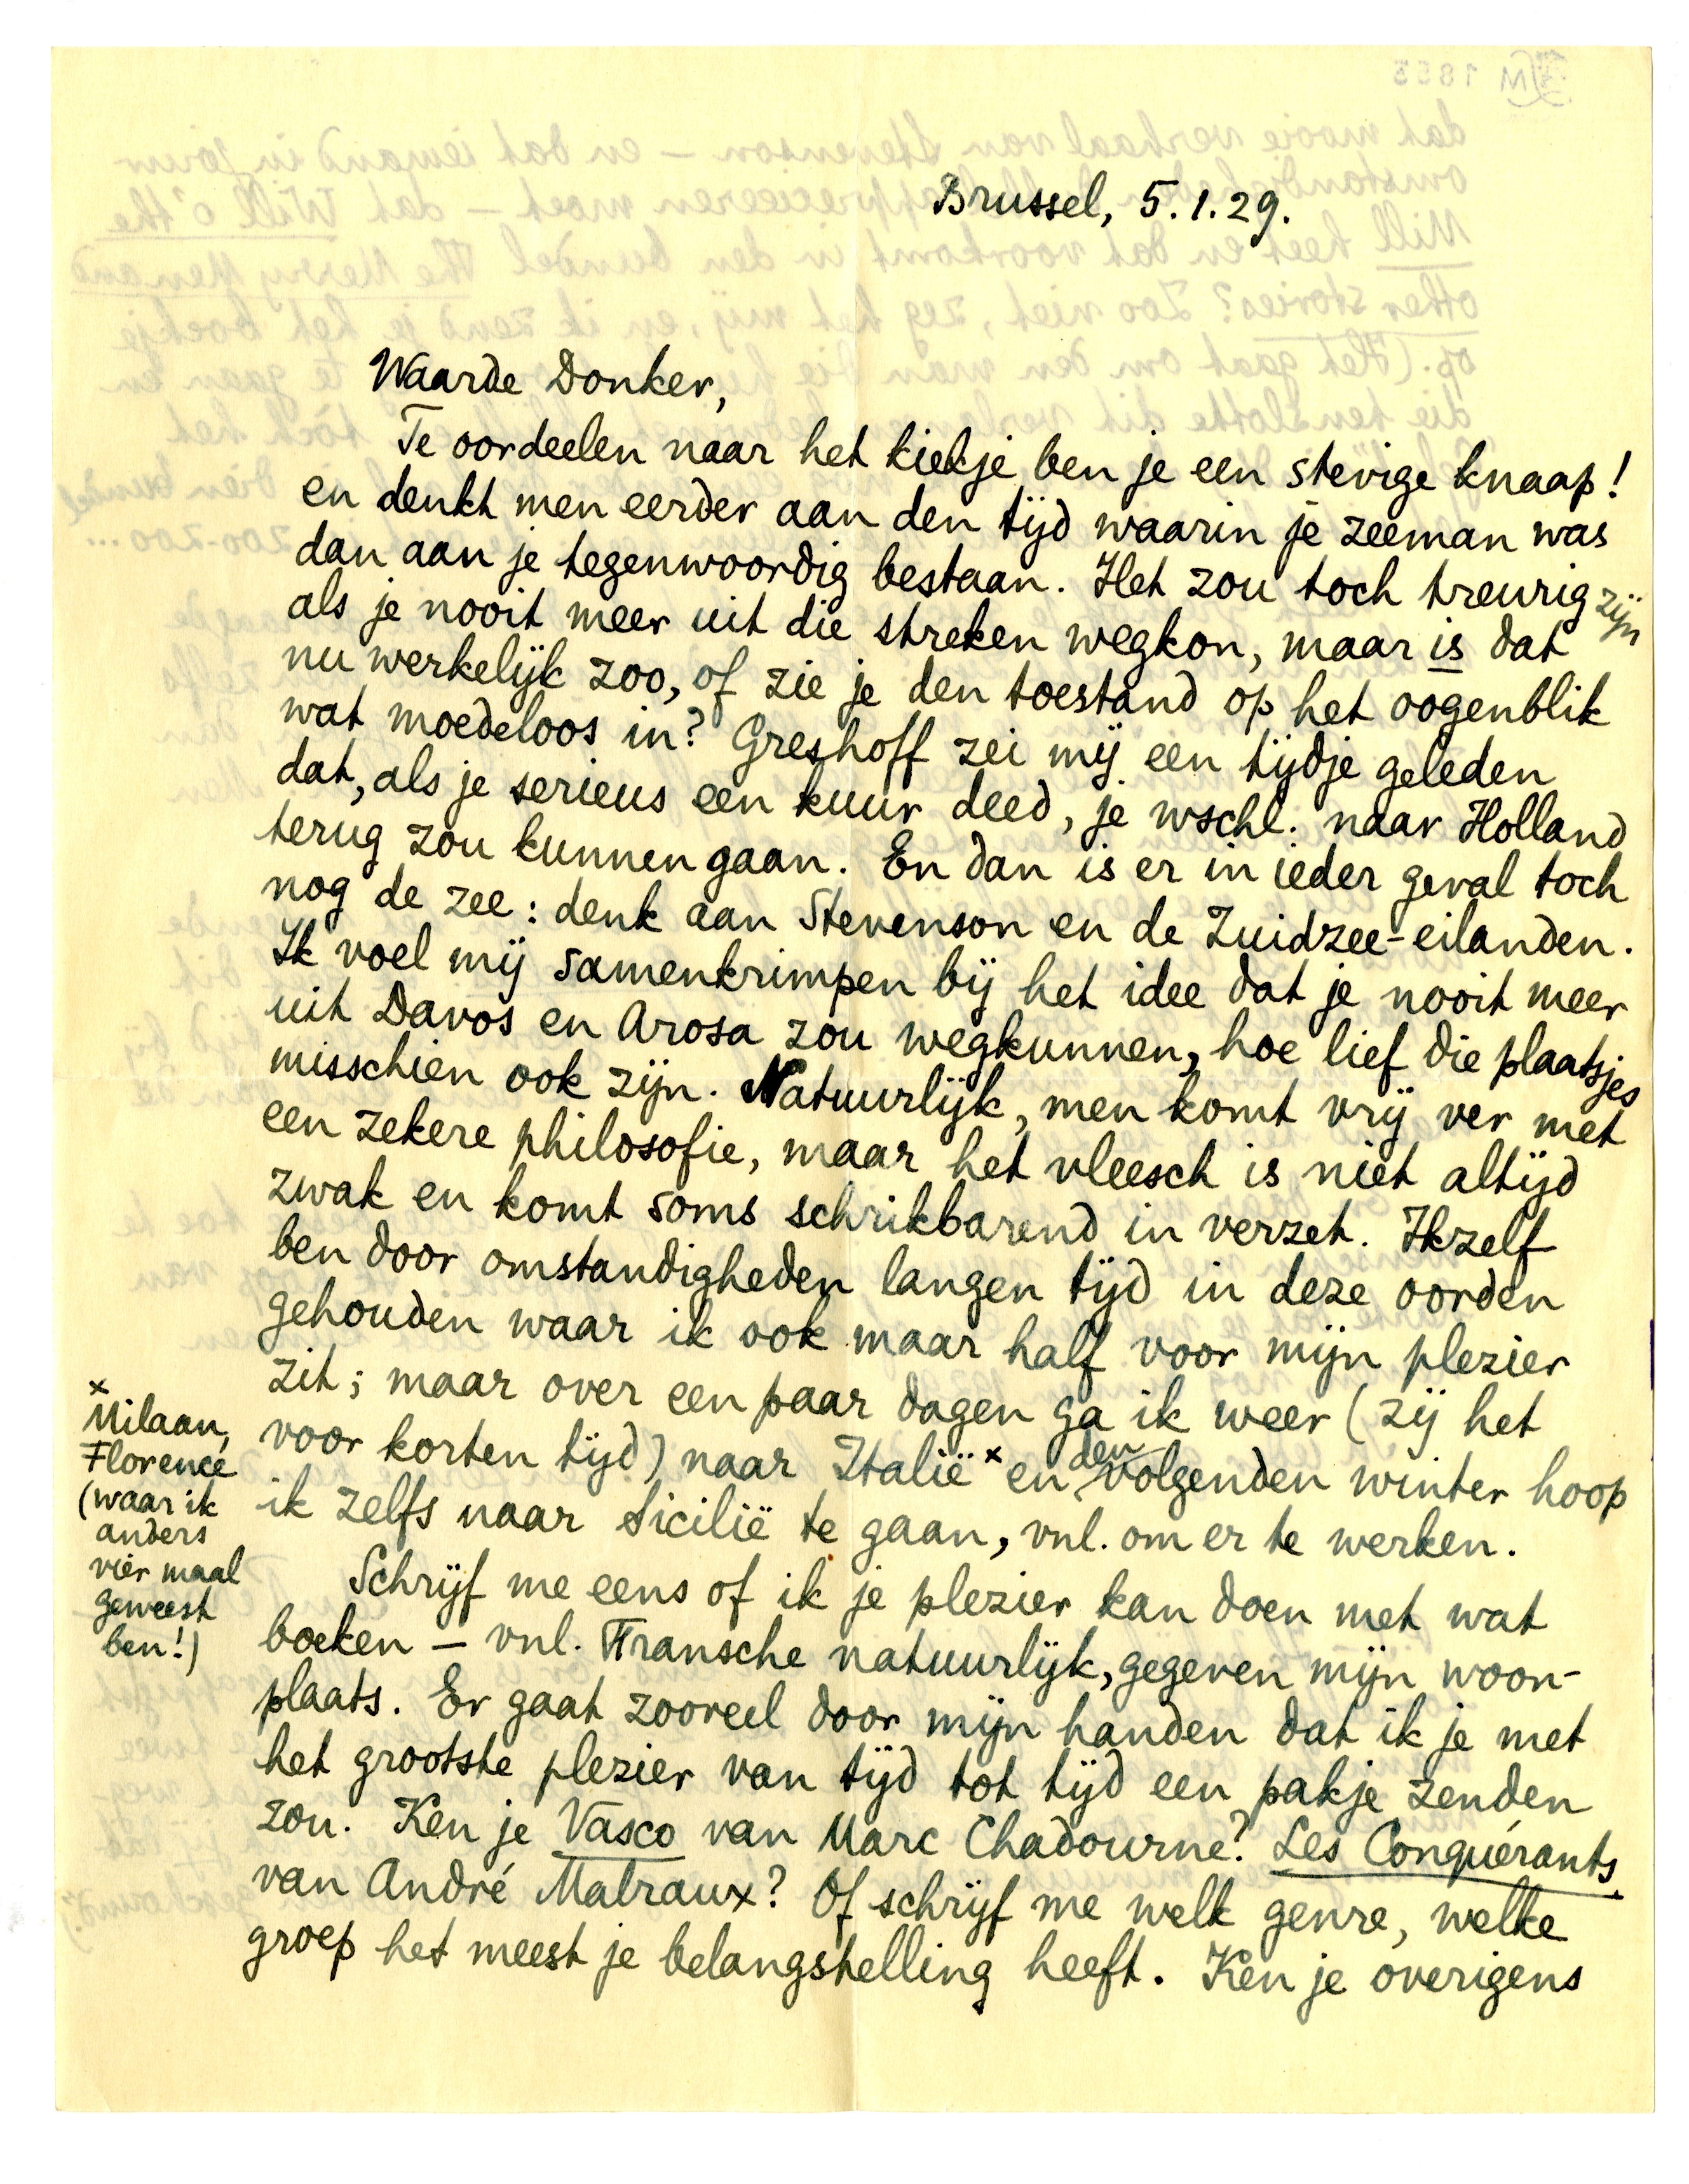 Brussel, 5.1.29.
Waarde Donker,
Te oordeelen naar het kiekje ben je een stevige knaap!
en denkt men eerder aan den tijd waarin je zeeman was
dan aan je tegenwoordig bestaan. Het zou toch treurig zijn
als je nooit meer uit die streken wegkon, maar is dat
nu werkelijk zoo, of zie je den toestand op het oogenblik
wat moedeloos in? Greshoff zei mij een tijdje geleden
dat, als je serieus een kuur deed, je wschl. naar Holland
terug zou kunnen gaan. En dan is er in ieder geval toch
nog de zee: denk aan Stevenson en de Zuidzee-eilanden.
Ik voel mij samenkrimpen bij het idee dat je nooit meer
uit Davos en Arosa zou wegkunnen, hoe lief die plaatsjes
misschien ook zijn. Natuurlijk, men komt vrij ver met
een zekere philosofie, maar het vleesch is niet altijd
zwak en komt soms schrikbarend in verzet. Ikzelf
ben door omstandigheden langen tijd in deze oorden
gehouden waar ik ook maar half voor mijn plezier
zit; maar over een paar dagen ga ik weer (zij het
voor korten tijd) naar Italië x en den volgenden winter hoop
ik zelfs naar Sicilië te gaan, vnl. om er te werken.
x
Milaan,
Florence
(waar ik
anders
vier maal
geweest
ben!)
Schrijf me eens of ik je plezier kan doen met wat
boeken – vnl. Fransche natuurlijk, gegeven mijn woon-
plaats. Er gaat zooveel door mijn handen dat ik je met
het grootste plezier van tijd tot tijd een pakje zenden
zou. Ken je Vasco van Marc Chadourne? Les Conquérants
van André Malraux? Of schrijf me welk genre, welke
groep het meest je belangstelling heeft. Ken je overigens